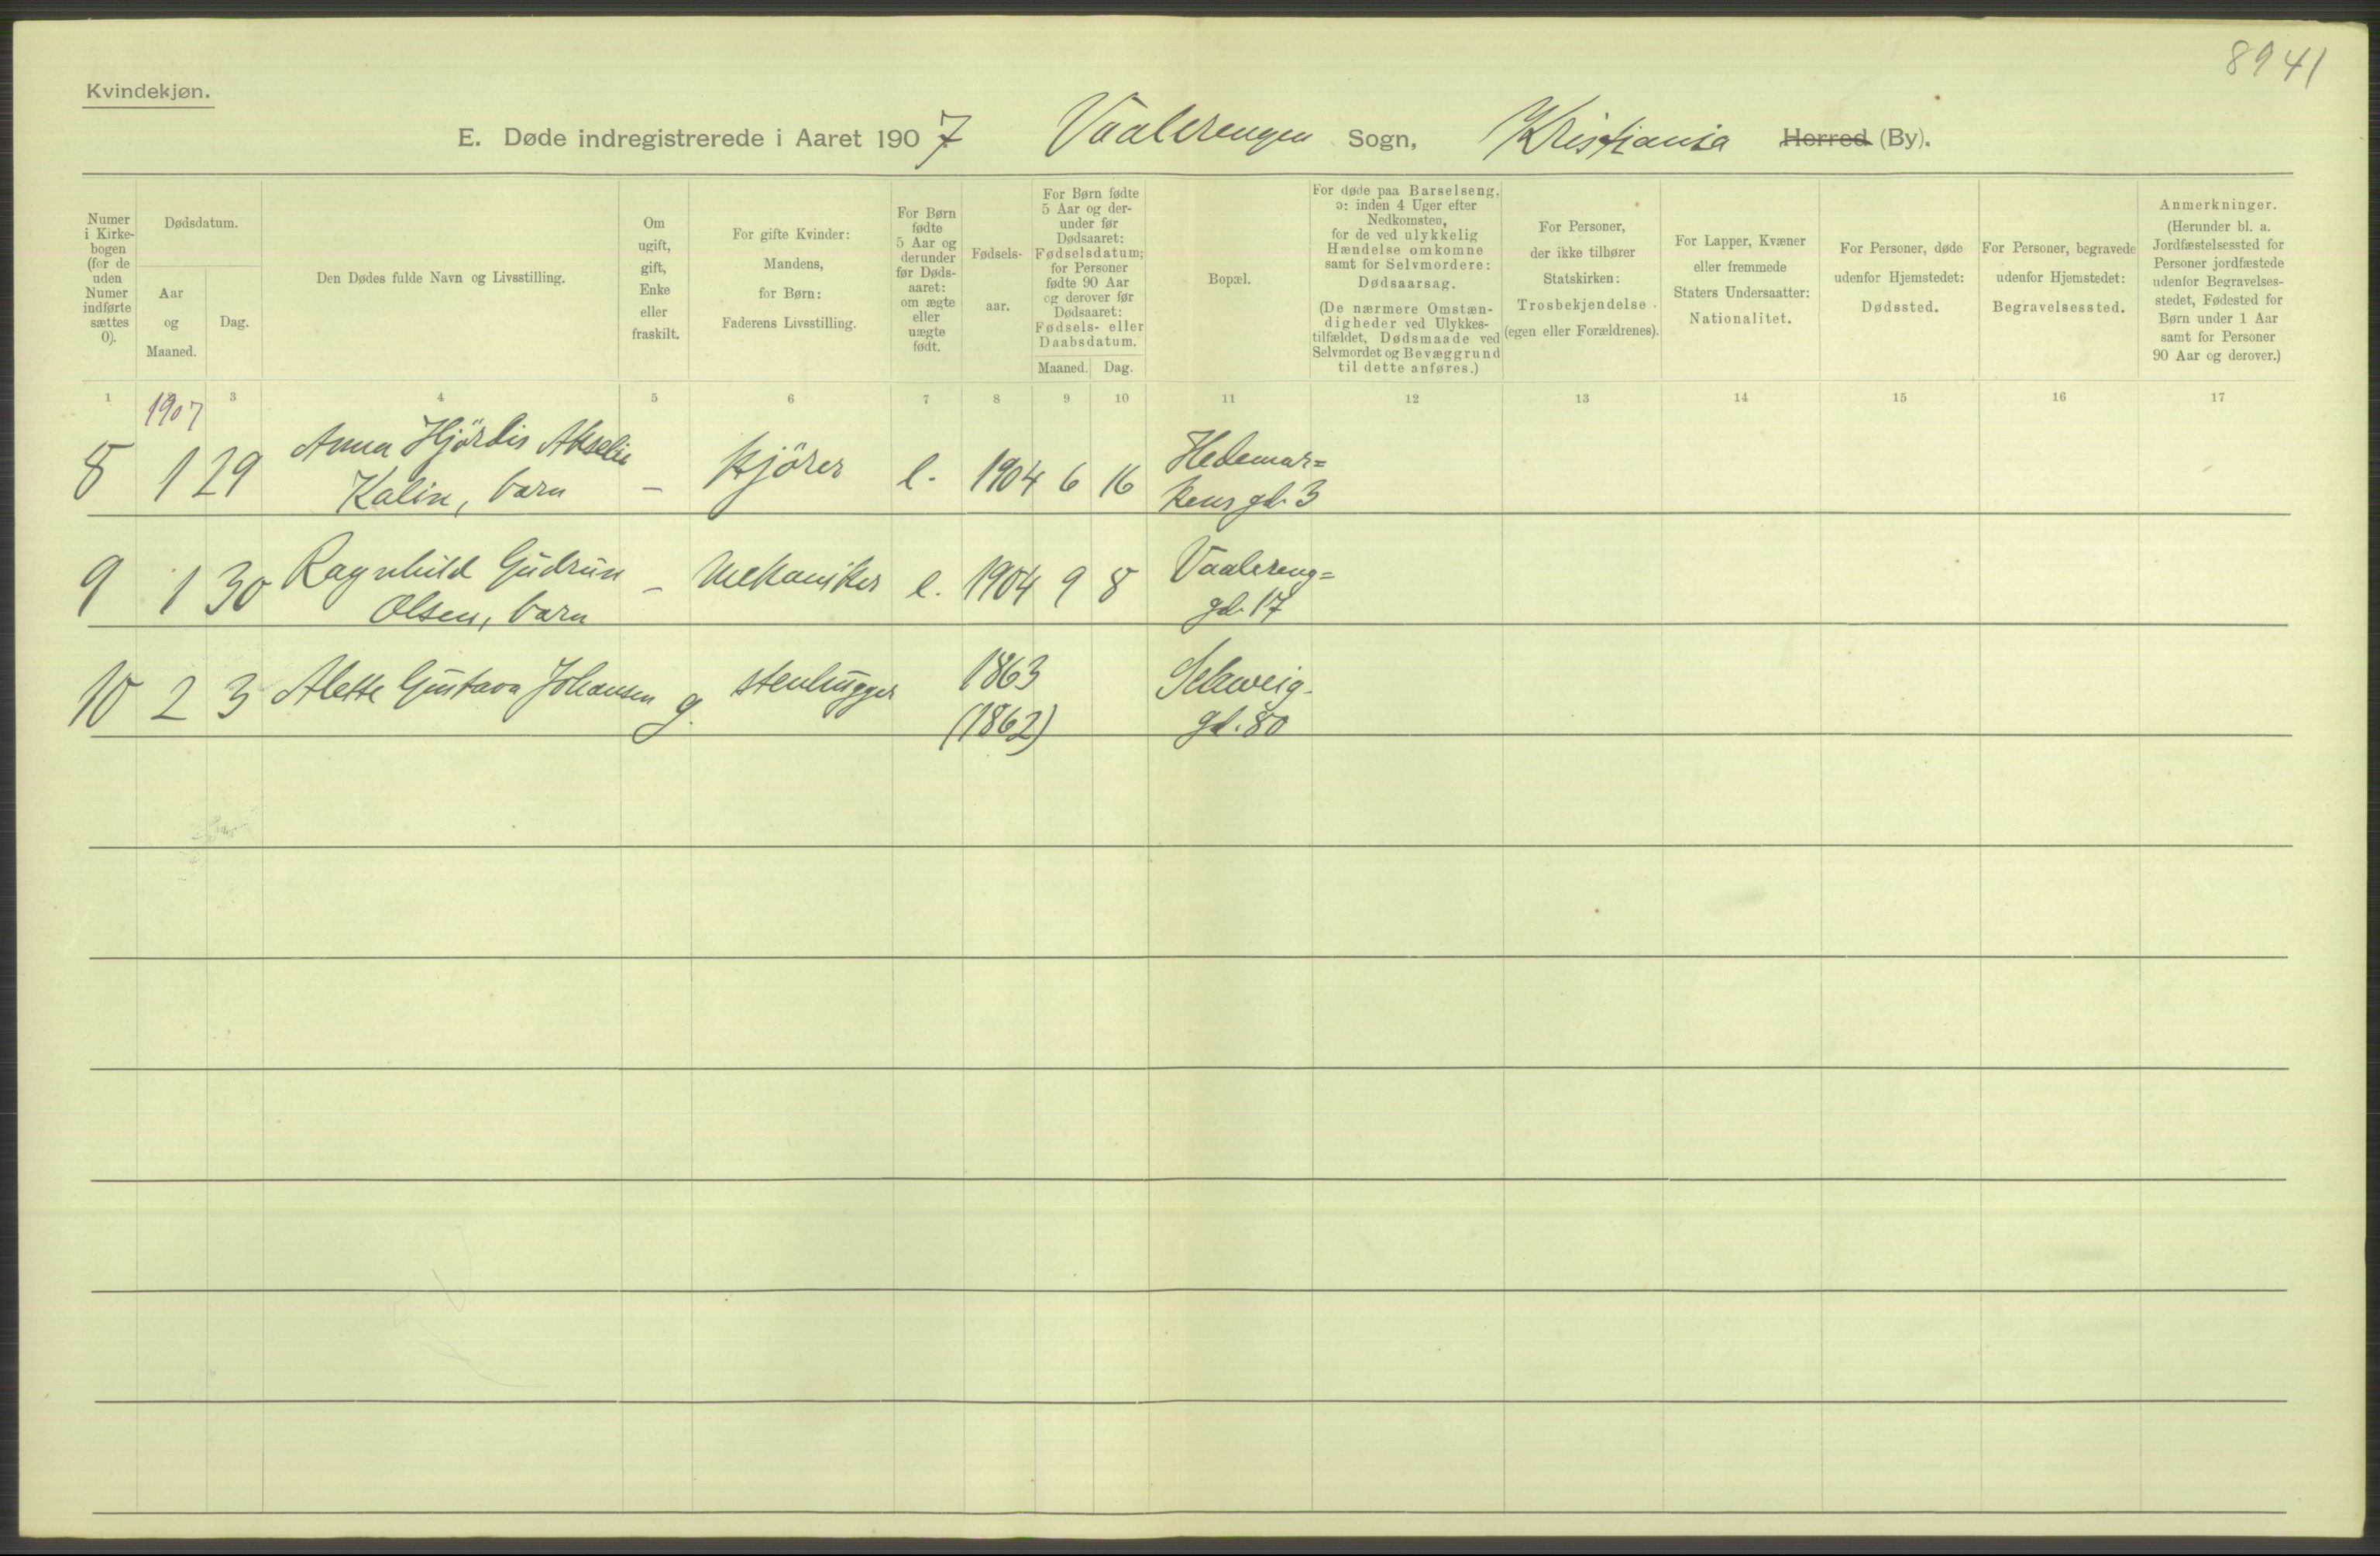 8941
Kvindekjøn.
E. Døde indregistrerede i Aaret 1907 Vaalerengen Sogn, Kristiania Herred (By).
Numer
i Kirke-
bogen
(for de
uden
Numer
indførte
sættes
0).
Dødsdatum.
Aar
og
Maaned.
Dag.
Den Dødes fulde Navn og Livsstilling.
Om
ugift,
gift,
Enke
eller
fraskilt.
For gifte Kvinder:
Mandens,
for Børn:
Faderens Livsstilling.
For Børn
fødte
5 Aar og
derunder
før Døds-
aaret:
om ægte
eller
uægte
født.
Fødsels-
aar.
For Børn fødte
5 Aar og der-
under før
Dødsaaret:
Fødselsdatum;
for Personer
fødte 90 Aar
og derover før
Dødsaaret:
Fødsels- eller
Daabsdatum.
Maaned. Dag.
Bopæl.
For døde paa Barselseng,
ɔ: inden 4 Uger efter
Nedkomsten,
for de ved ulykkelig
Hændelse omkomne
samt for Selvmordere:
Dødsaarsag.
(De nærmere Omstæn-
digheder ved Ulykkes-
tilfældet, Dødsmaade ved
Selvmordet og Bevæggrund
til dette anføres.)
For Personer,
der ikke tilhører
Statskirken:
Trosbekjendelse
(egen eller Forældrenes).
For Lapper, Kvæner
eller fremmede
Staters Undersaatter:
Nationalitet.
For Personer, døde
udenfor Hjemstedet:
Dødssted.
For Personer, begravede
udenfor Hjemstedet:
Begravelsessted.
Anmerkninger.
(Herunder bl. a.
Jordfæstelsessted for
Personer jordfæstede
udenfor Begravelses-
stedet, Fødested for
Børn under 1 Aar
samt for Personer
90 Aar og derover.)
1 3 4 5 6 7 8 9 10 11 12 13 14 15 16 17
1907
8 1 29 Anna Hjördis Akselie - Kjörer l. 1904 6 16 Hedemar=
Kalin, barn kens gd. 3
9 1 30 Ragnhild Gudrun - Mekaniker l. 1904 9 8 Vaalereng=
Olsen, barn gd. 17
10 2 3 Alette Gustava Johansen g. stenhugger 1863 Schweig.
(1862) gd. 80